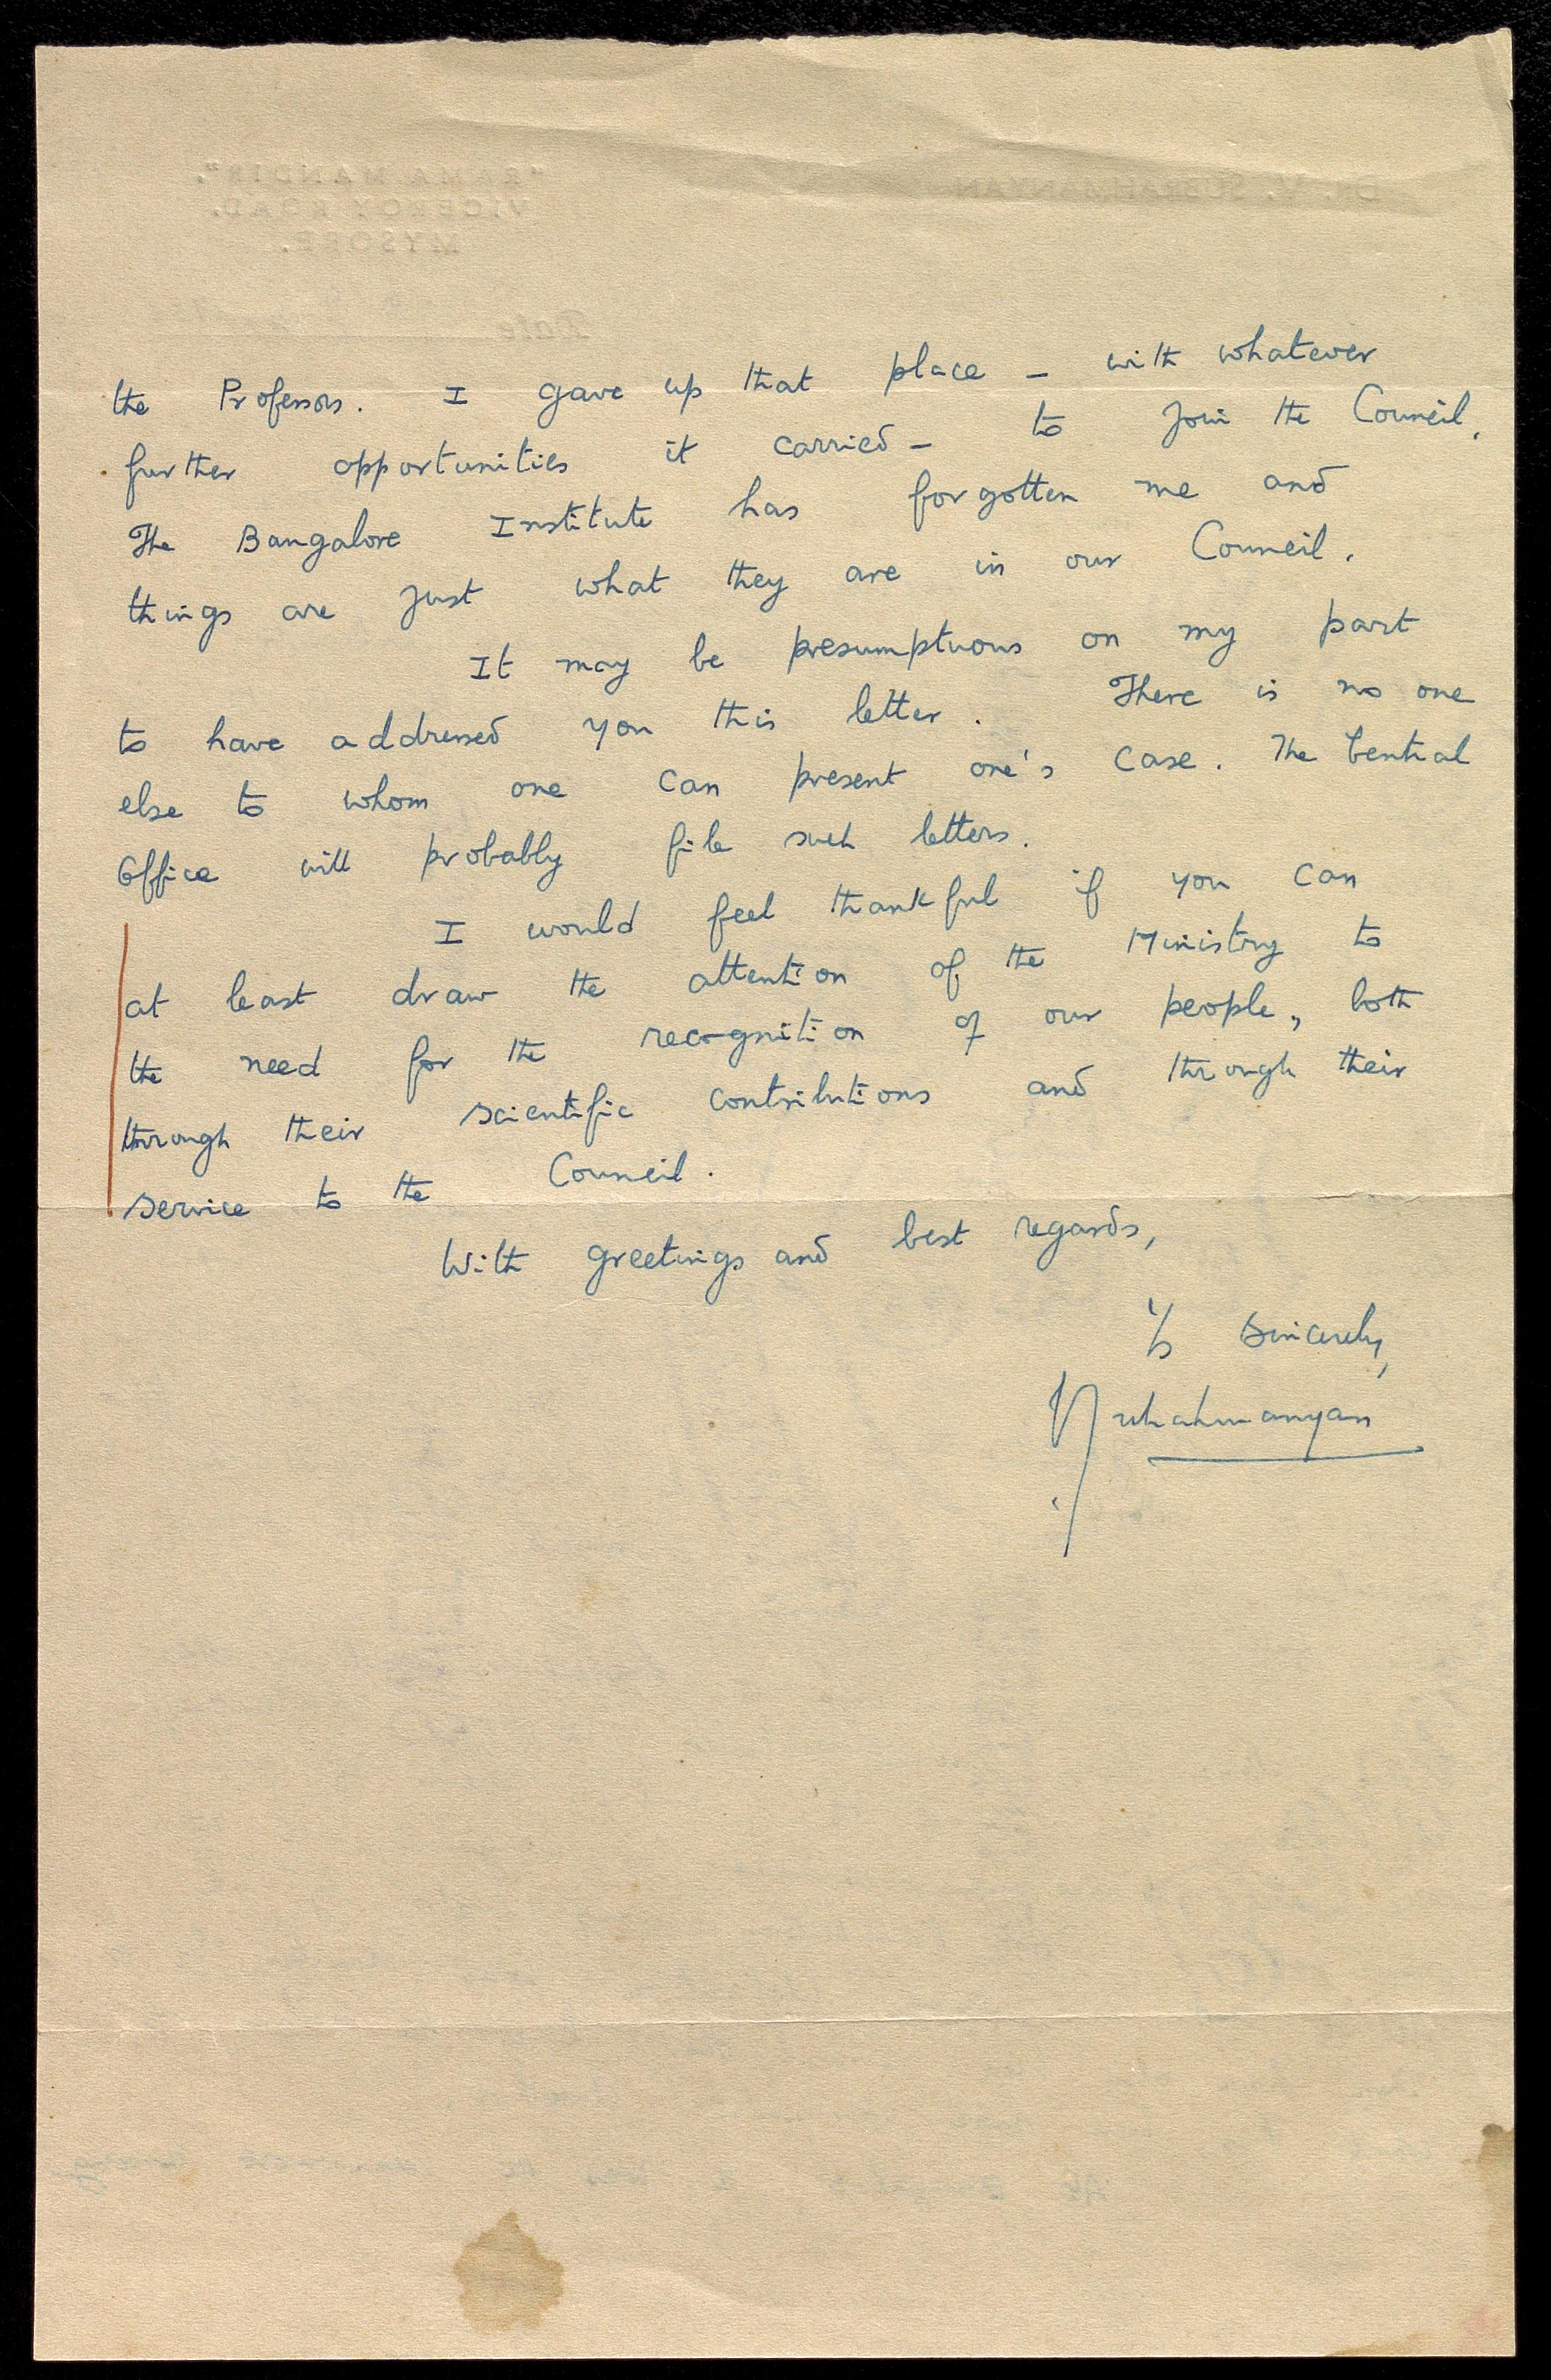 the Professors. I gave up that place - with whatever
further opportunities it carried - to join the Council.
The Bangalore Institute has forgotten me and
things are just what they are in our Council.
It may be presumptuous on my part
to have addressed you this letter. There is no one
else to whom one can present one's case. The Central
Office will probably file such letters.
I would feel thankful if you can
at least draw the attention of the Ministry to
the need for the recognition of our people, both
through their scientific contributions and through their
service to the Council.
With greetings and best regards,
Ys sincerely,
V. Subrahmanyan